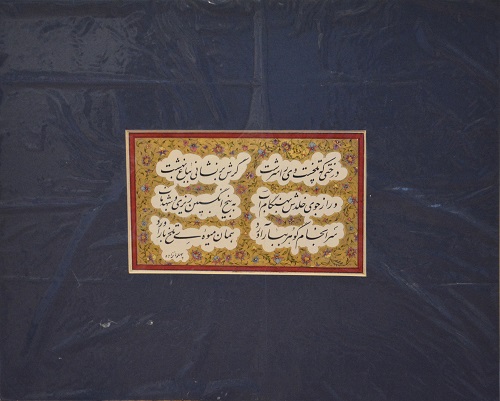 درختی که تلخست وی را سرشت گرش برنشانی بباغ بهشت
ور از جوی خلدش بهنگام آب به بیخ انگبین ریزی و شهد ناب
سرانجام گوهر بکار آورد همان میوه تلخ بار آورد